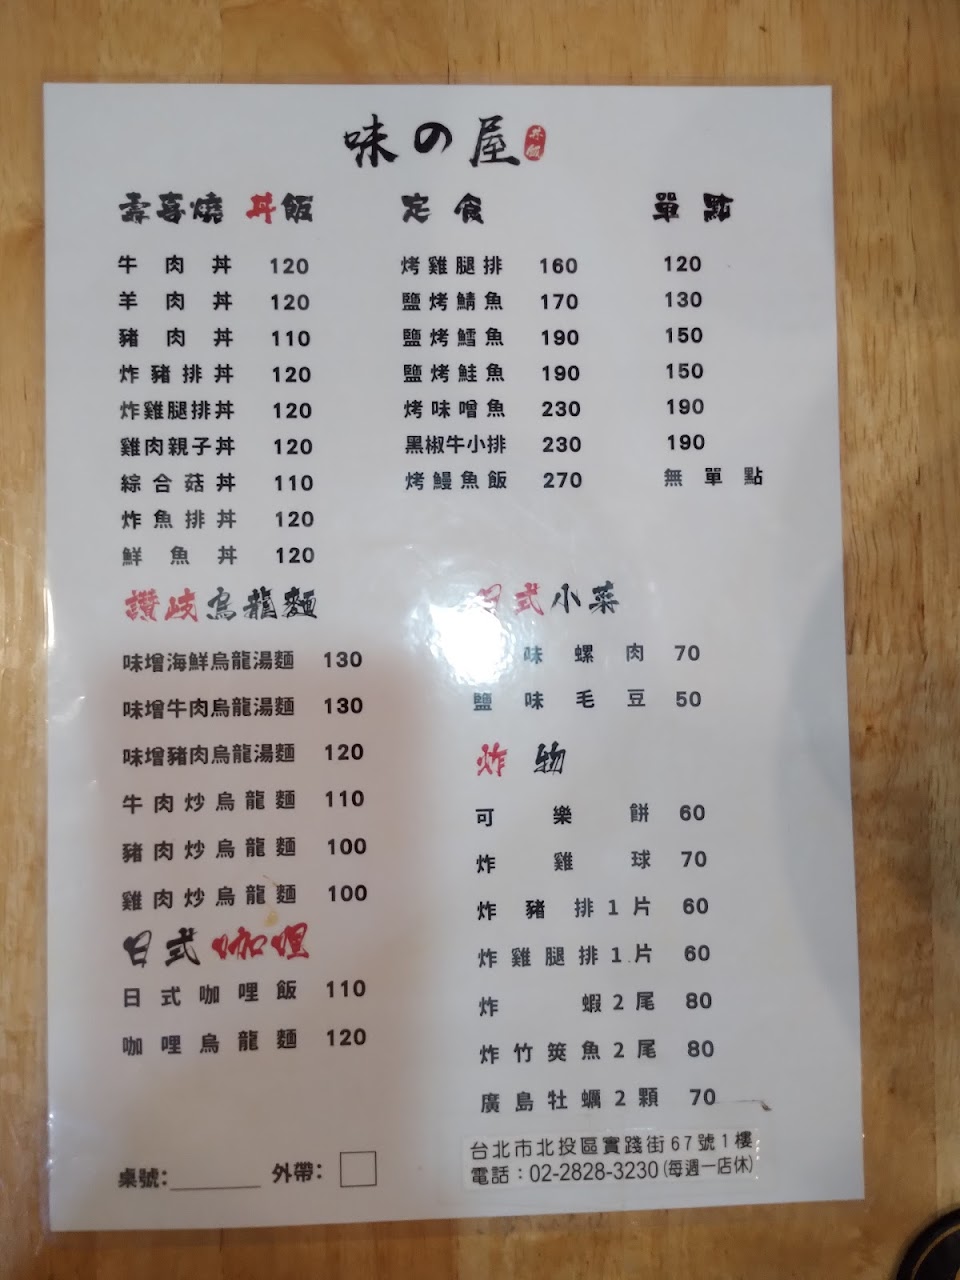 味の屋
丼飯
壽喜燒 丼飯
牛肉丼 120
羊肉丼 120
豬肉丼 110
炸豬排丼 120
炸雞腿排丼 120
雞肉親子丼 120
綜合菇丼 110
炸魚排丼 120
鮮魚丼 120
讚岐烏龍麵
味增海鮮烏龍湯麵 130
味增牛肉烏龍湯麵 130
味增豬肉烏龍湯麵 120
牛肉炒烏龍麵 110
豬肉炒烏龍麵 100
雞肉炒烏龍麵 100
日式咖哩
日式咖哩飯 110
咖哩烏龍麵 120
定食 單點
烤雞腿排 160 120
鹽烤鯖魚 170 130
鹽烤鱈魚 190 150
鹽烤鮭魚 190 150
烤味噌魚 230 190
黑椒牛小排 230 190
烤鰻魚飯 270 無單點
日式小菜
味螺肉 70
鹽味毛豆 50
炸物
可樂餅 60
炸雞球 70
炸豬排1片 60
炸雞腿排1片 60
炸蝦2尾 80
炸竹筴魚2尾 80
廣島牡蠣2顆 70
桌號：
外帶：
台北市北投區實踐街67號1樓
電話：02-2828-3230(每週一店休)